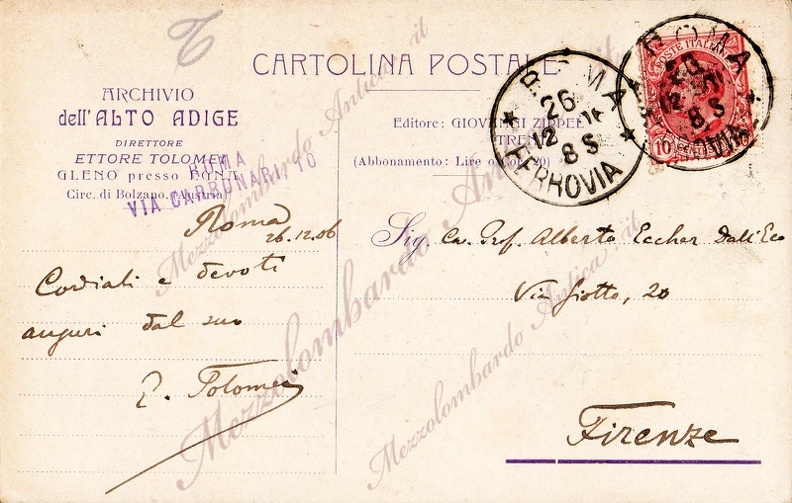 CARTOLINA POSTALE
ARCHIVIO
dell'ALTO ADIGE
DIRETTORE
ETTORE TOLOMEI
GLENO presso EGNA
Circ. di Bolzano (Austria)
ROMA
VIA CARBONARI 10
Editore: GIOVANNI ZIPPEL
TRENTO
(Abbonamento: Lire o Cor. 20)
ROMA
26
12
8S
FERROVIA
ROMA
26
12
8S
POSTE ITALIANE
10
Roma
26.12.06
Cordiali e devoti
auguri dal suo
E. Tolomei
Sig. Cav. Prof. Alberto Eccher Dall'Eco
Via Giotto, 20
Firenze
Mezzolombardo Antica . it
Mezzolombardo Antica . it
Mezzolombardo Antica . it